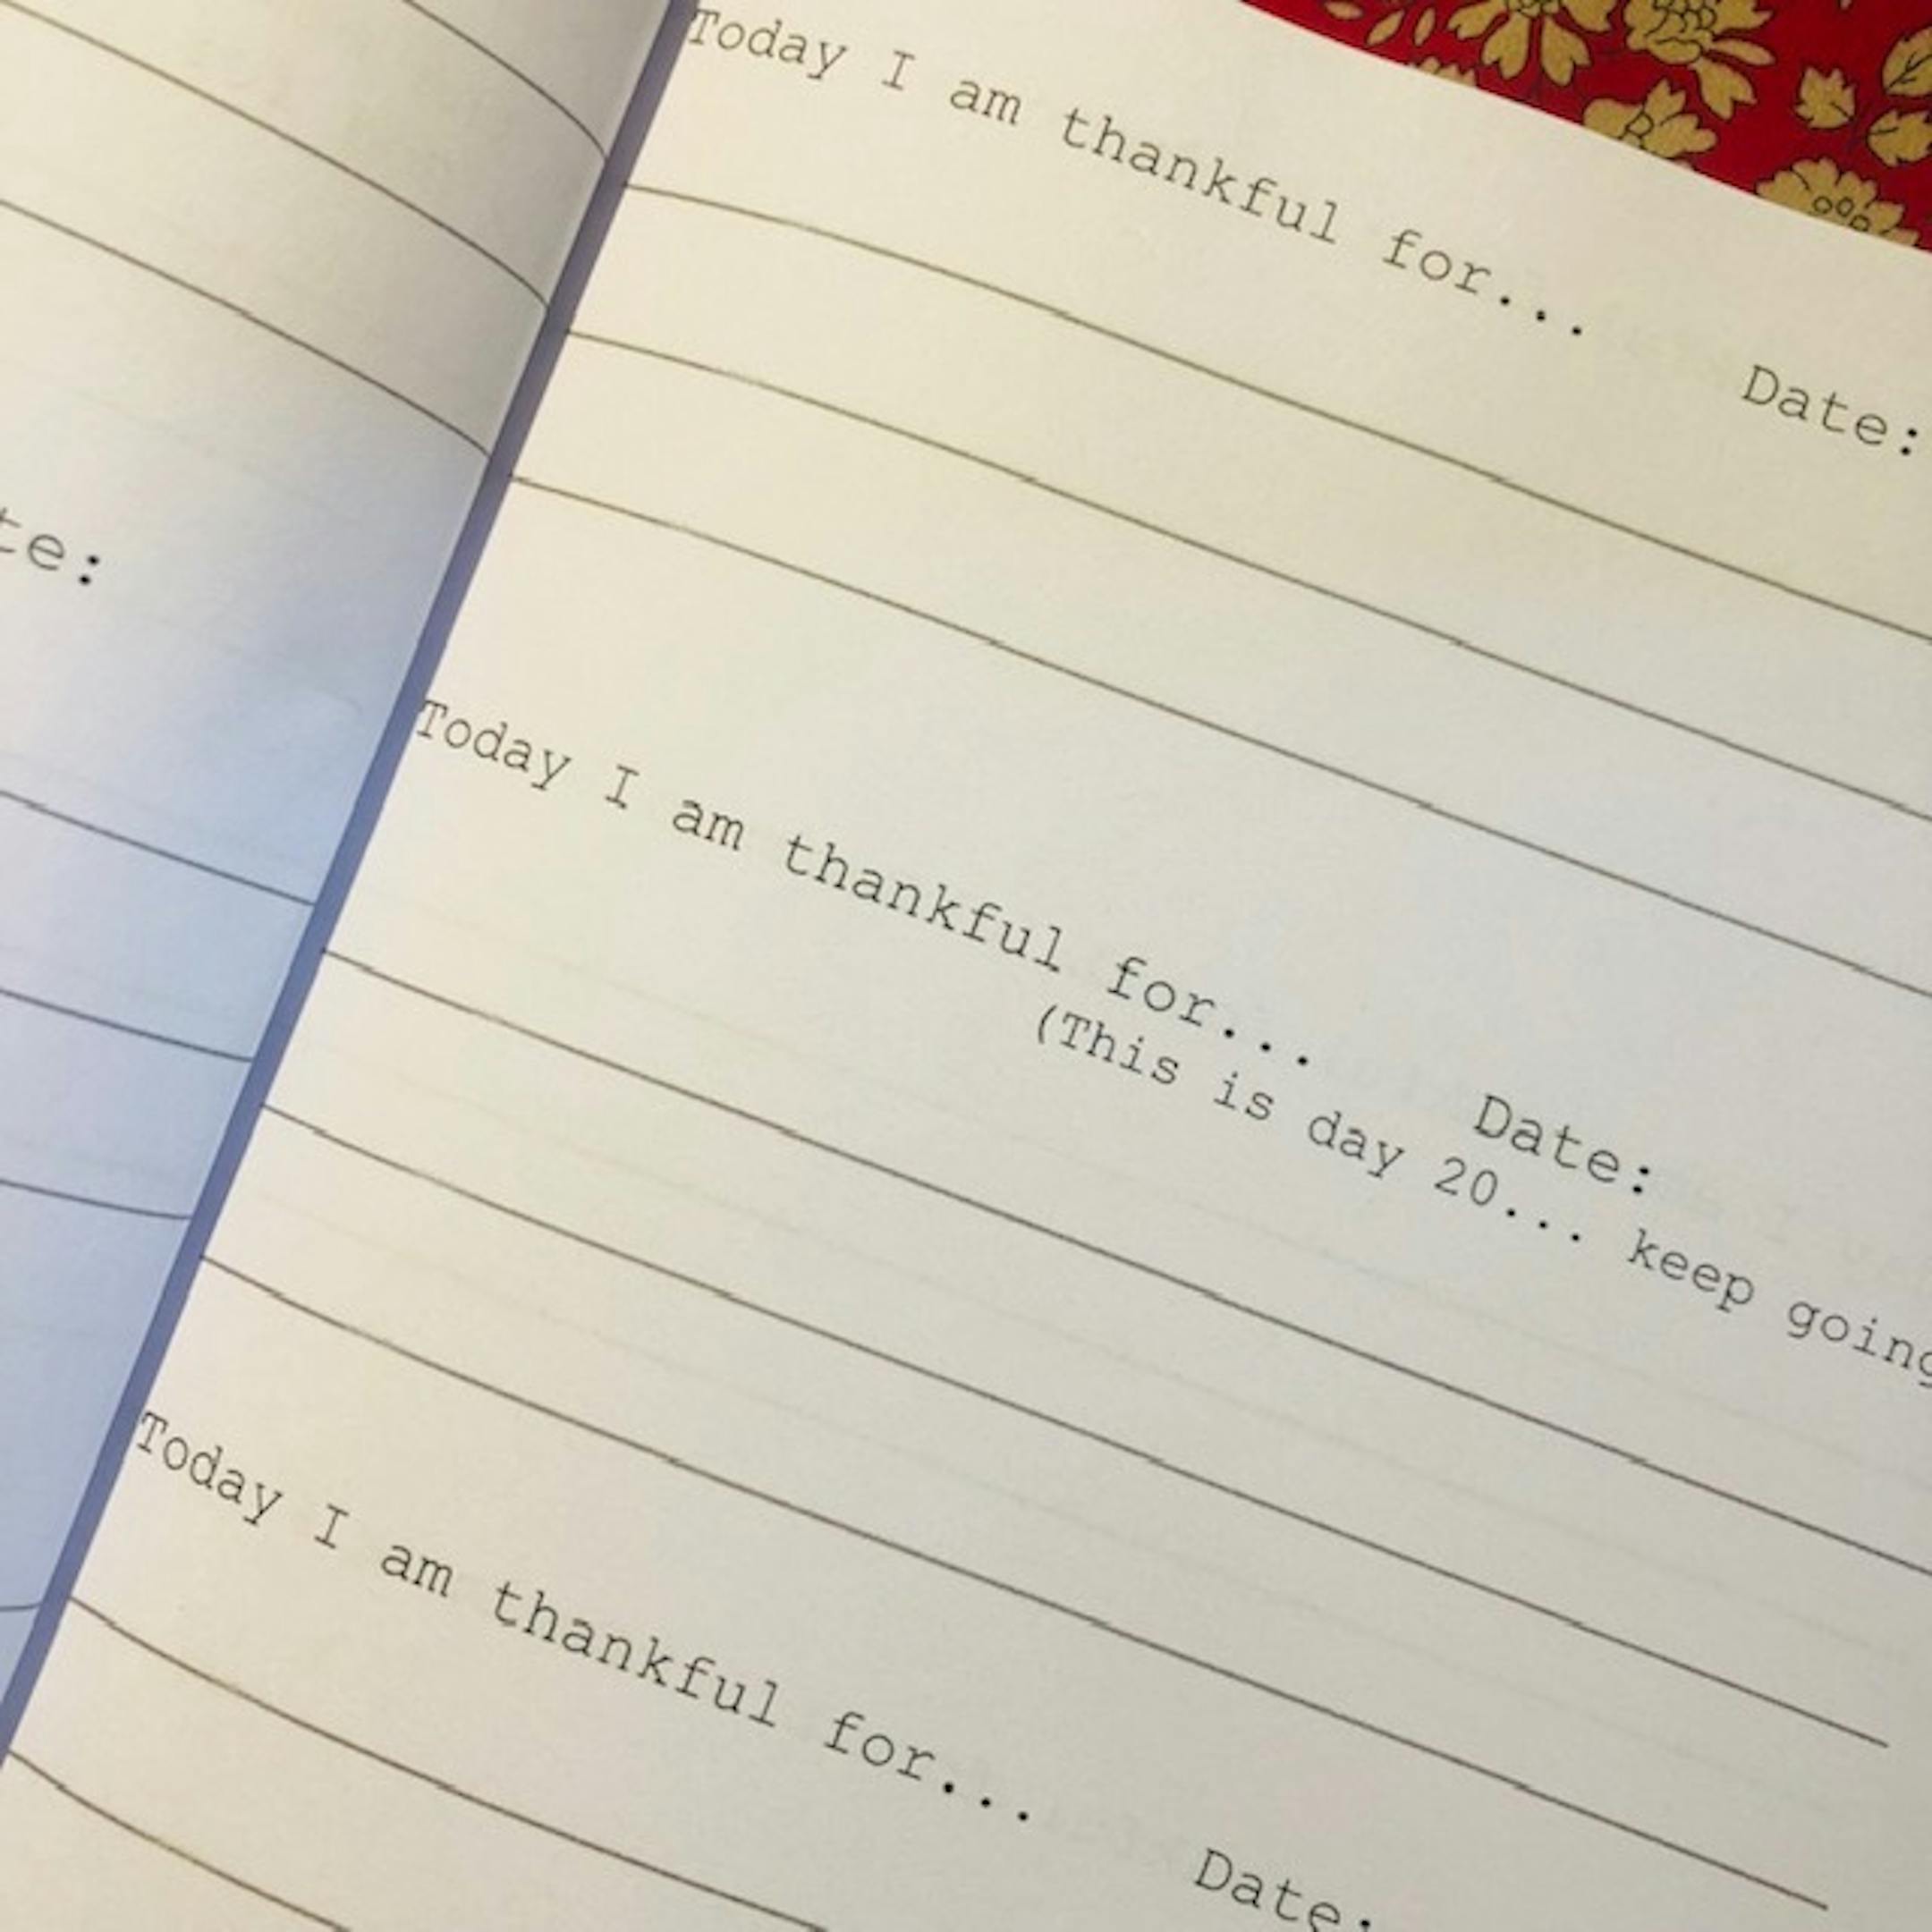 te:
Today I am thankful for... Date:
Today I am thankful for... Date:
(This is day 20... keep going
Today I am thankful for... Date: